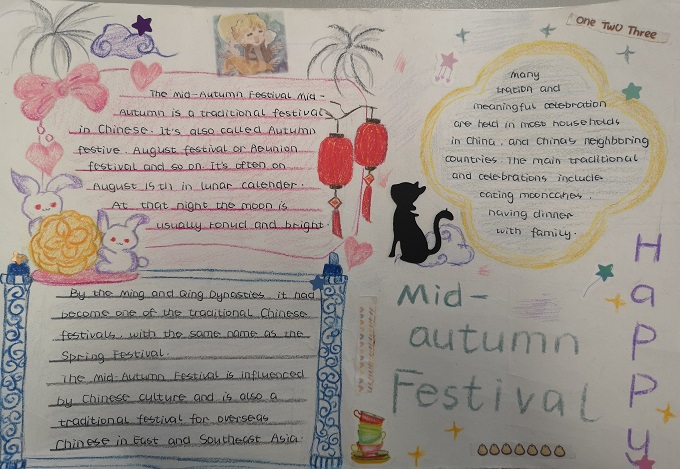 The Mid-Autumn Festival Mid-
Autumn is a traditional festival
in Chinese. It's also called Autumn
festive. August festival or Reunion
festival and so on. It's often on
August 15th in lunar calender.
At that night the moon is
usually ronud and bright.
By the Ming and Qing Dynasties, it had
become one of the traditional Chinese
festivals, with the same name as the
Spring Festival.
The Mid-Autumn Festival is influenced
by Chinese culture and is also a
traditional festival for overseas
Chinese in East and Southeast Asia.
One Two Three
Many
tration and
meaningful celebration
are held in most households
in China, and China's neighboring
countries. The main traditional
and celebrations include
eating mooncakes,
having dinner
with family.
Mid-
autumn
Festival
HaPPy